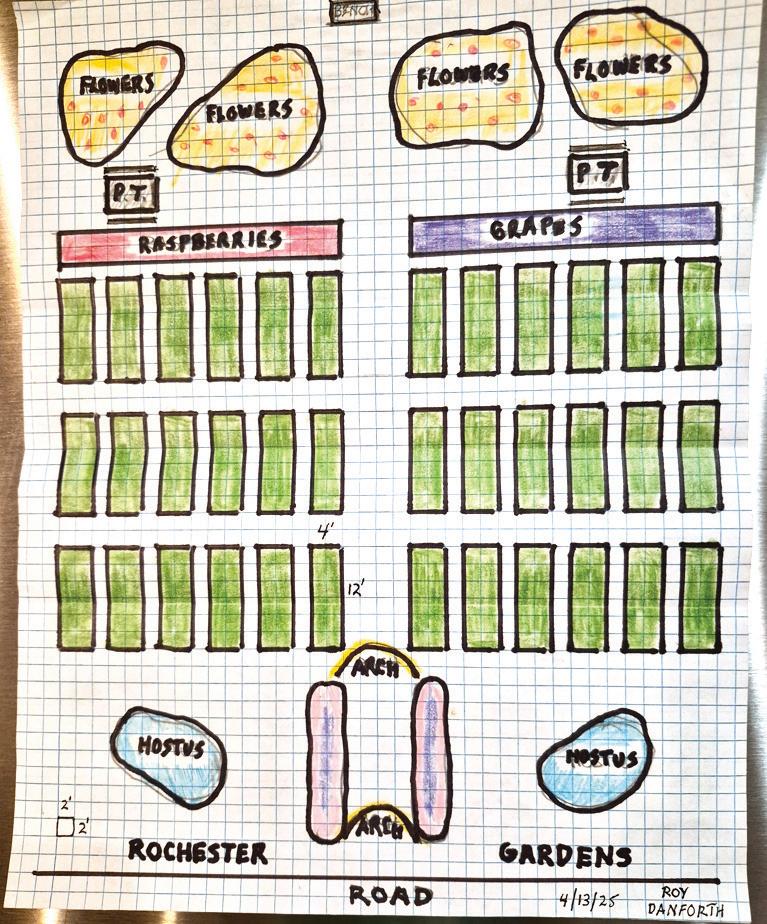 BENCH
FLOWERS
FLOWERS
FLOWERS
FLOWERS
P.T.
P T
RASPBERRIES
GRAPES
4'
12'
ARCH
HOSTUS
HOSTUS
2'
2'
ARCH
ROCHESTER GARDENS
ROAD
4/13/25
ROY
DANFORTH